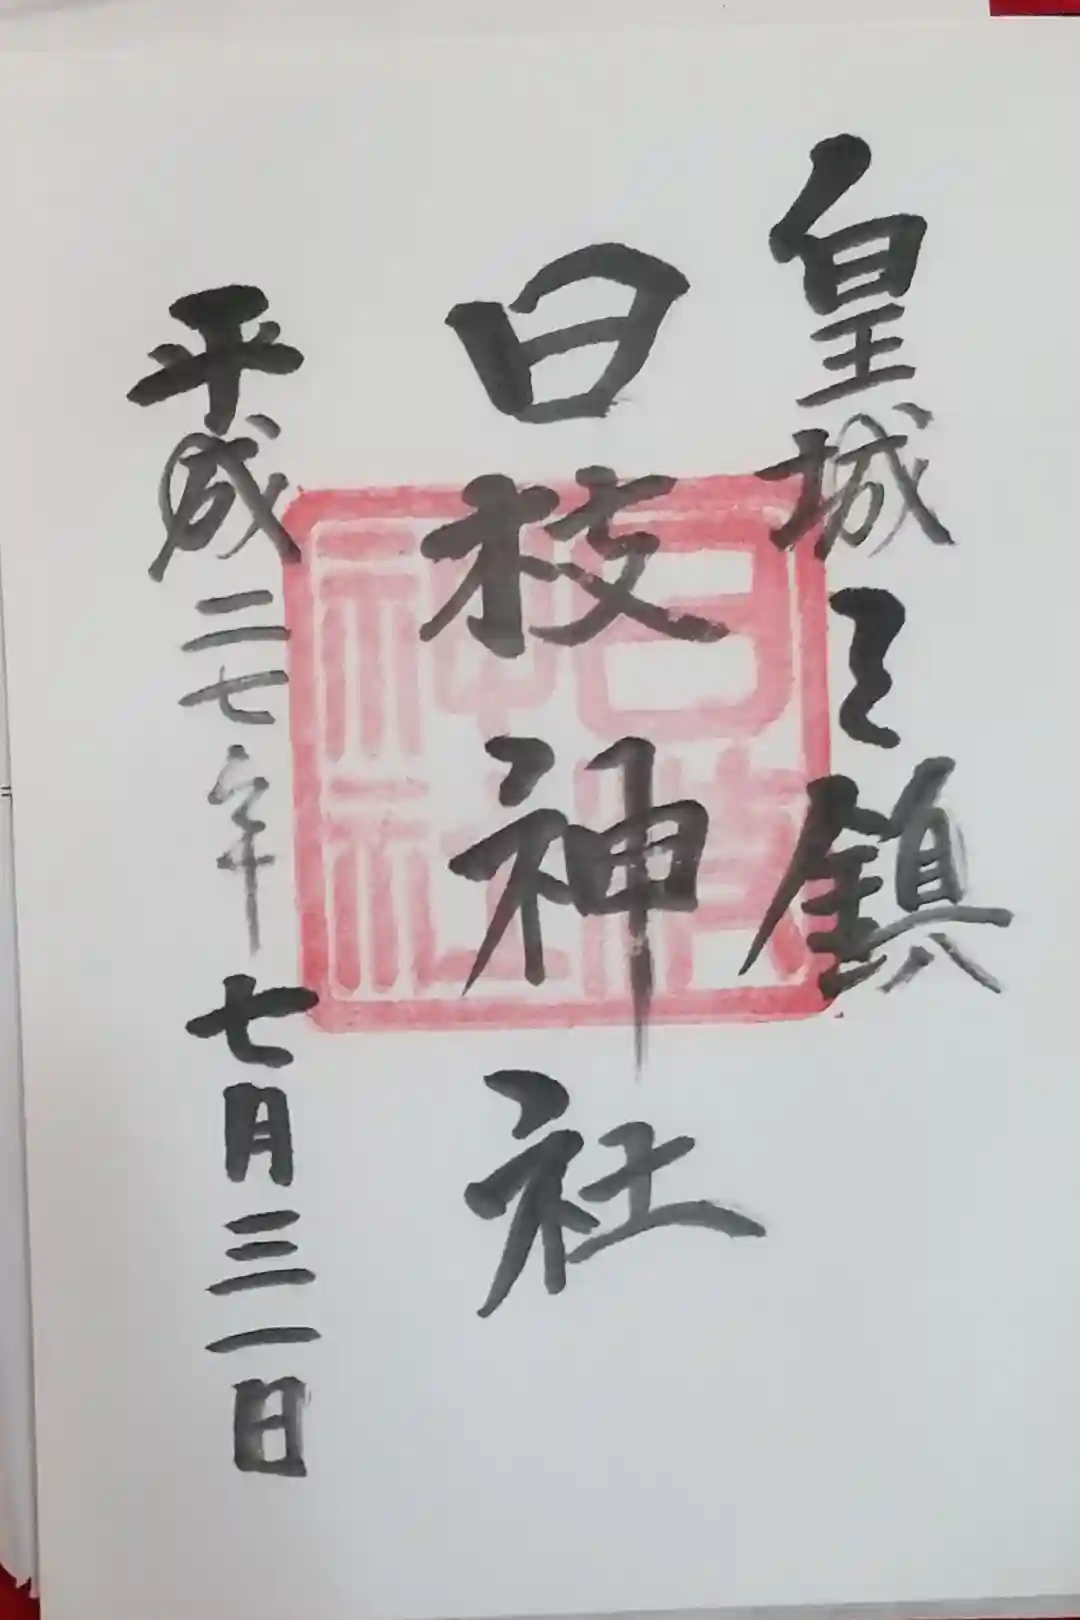 皇城之鎮
日枝神社
平成二七年七月三一日
日枝神社